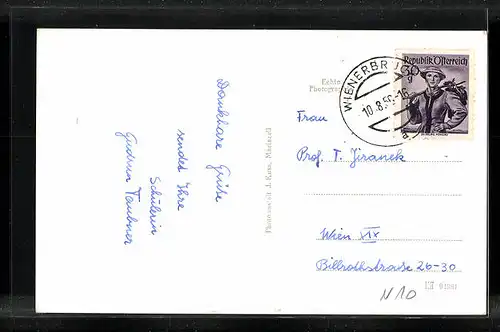 Dankbare Grüße
sendet Ihre
Schülerin
Gudrun Taubner
Photoanstalt J. Kuss, Mariazell
Echte
Photograp
WIENERBRUCK
10.8.59-16
Republik Österreich
30 g
Frau
Prof. T. Jiranek
Wien XIX
Billrothstrasse 26-30
N10